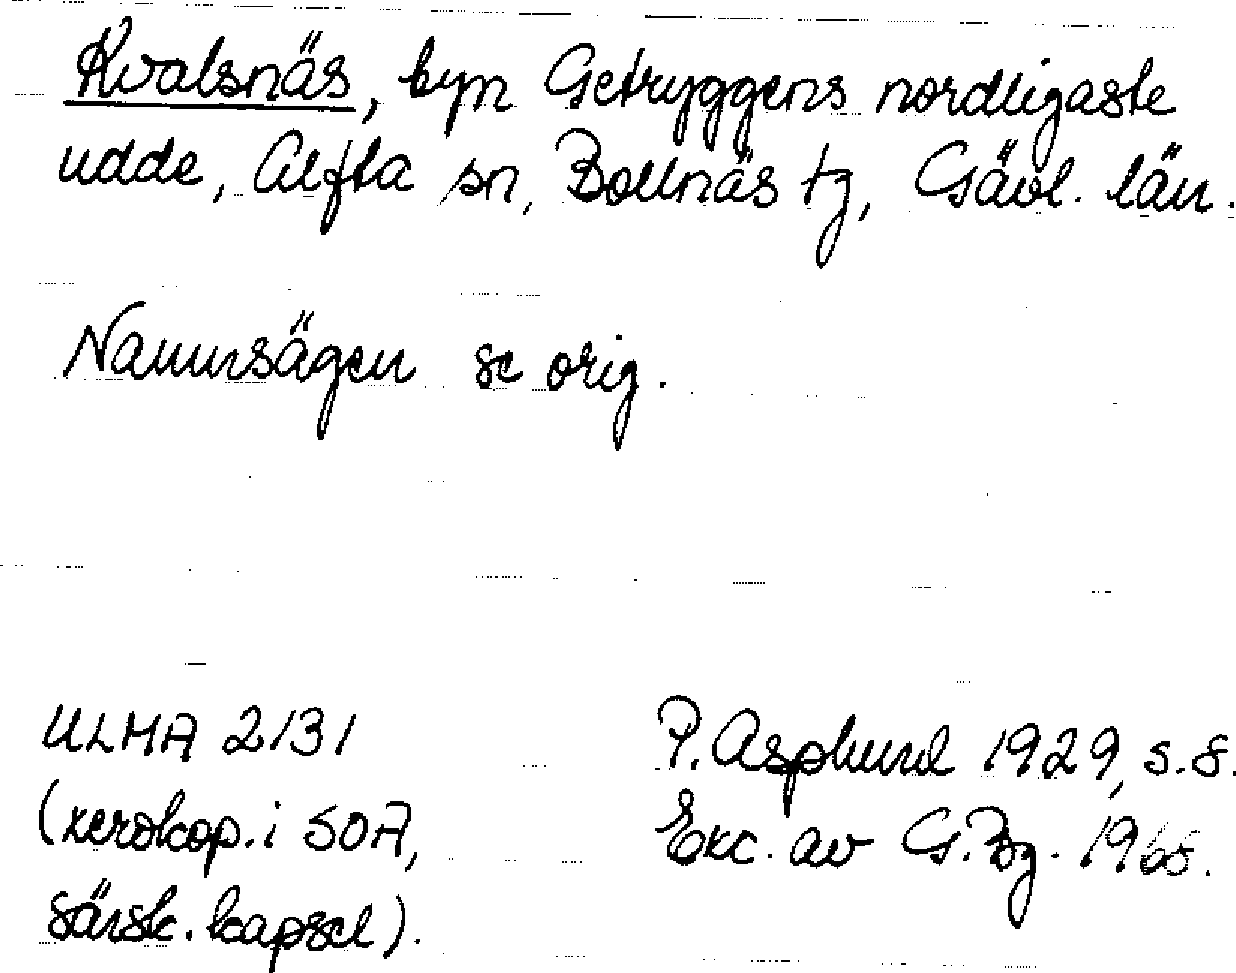 Kvalsnäs, byn Getryggens nordligaste
udde, Alfta sn, Bollnäs tg, Gävl. län.
Namnsägen se orig.
ULMA 2131
(xerokop. i SOA,
särsk. kapsel).
P. Asplund 1929, s. 8.
Exc. av G. Bg. 1965.